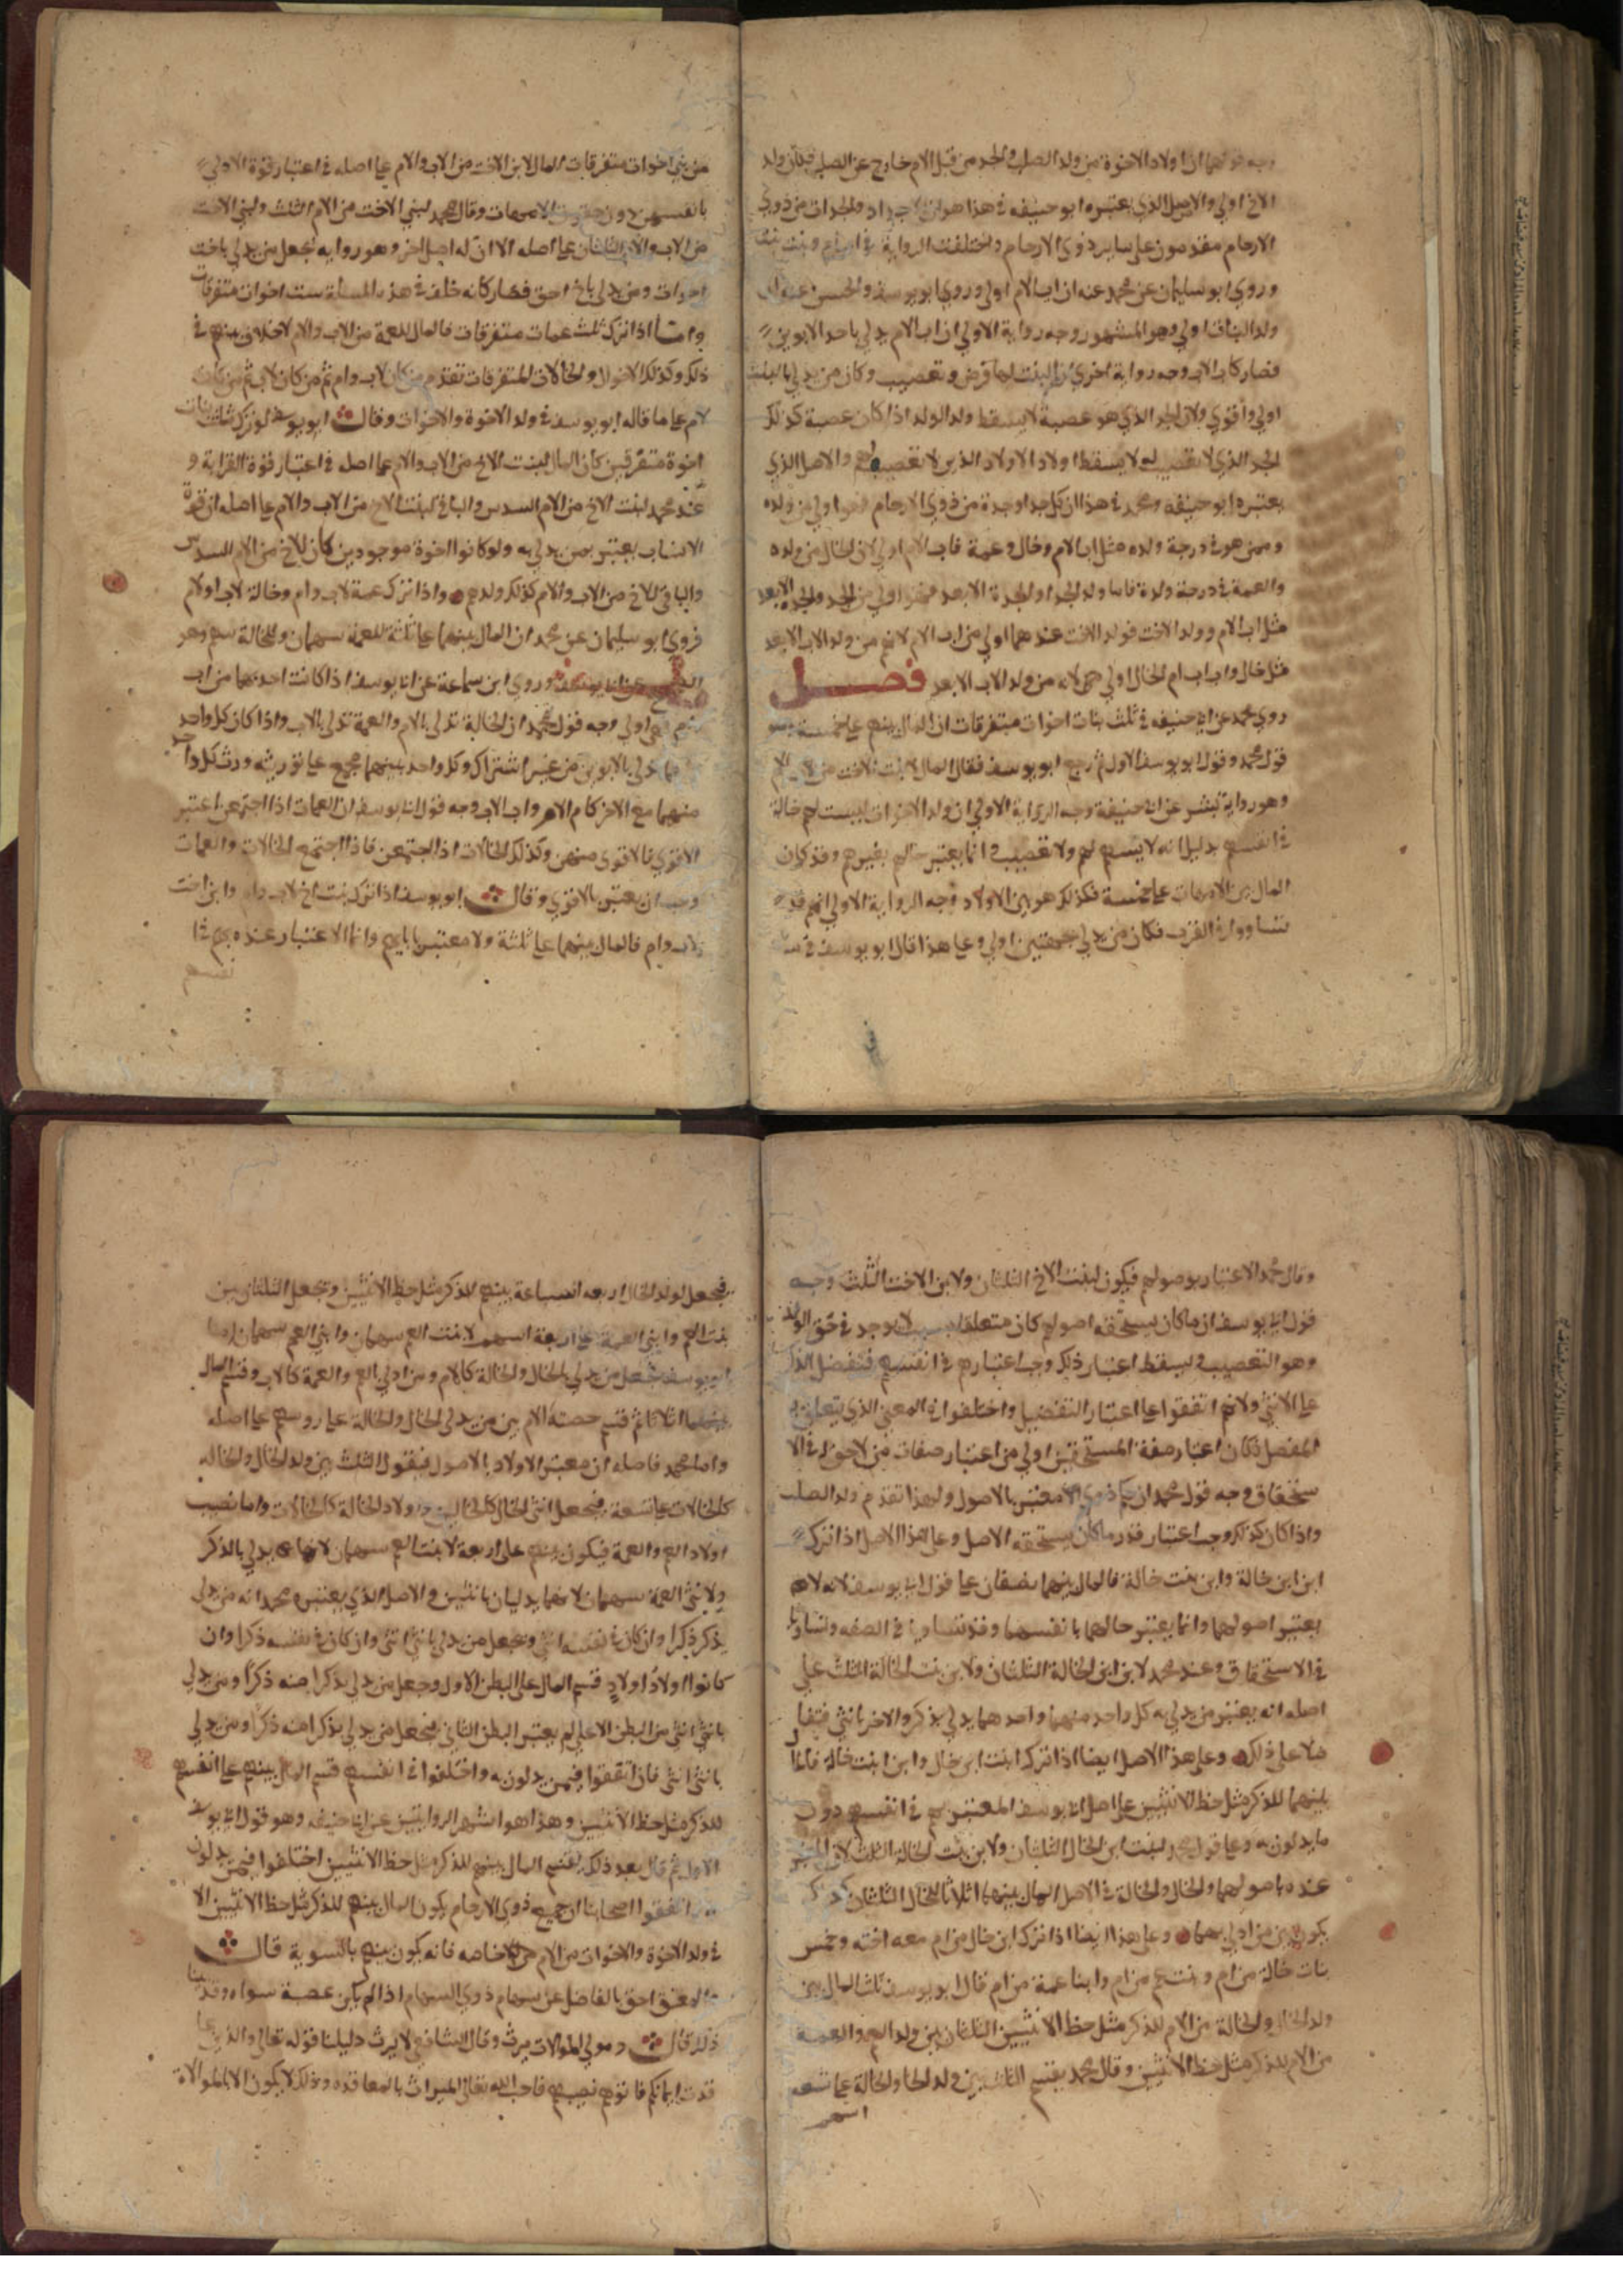 وجه قولهما ان اولاد الاخوة من ولد الصلب والجد من قبل الام خارج عن الصلب فكان ولد
الاخ اولي والاصل الذي يعتبره ابو حنيفه في هذا هو ان الاجداد والجدات من ذوي
الارحام مقدمون على ساير ذوي الارحام واختلفت الرواية في اب ام وبنت بنت
وروي ابو سليمان عن محمد عنه ان اب الام اولي وروي ابو يوسف والحسن عنه ان
ولد البنات اولي وهو المشهور وجه رواية الاولي ان اب الام يدلي باحد الابوين
فصار كاب الاب وجه رواية اخري ان البنت لها فرض وتعصيب وكان من يدلي بالبنت
اولي واقوي ولان الجد الذي هو عصبة لا يسقط ولد الولد اذا كان عصبة كذلك
الجد الذي لا تعصيب له لا يسقط اولاد الاولاد الذين لا تعصيب لهم والاصل الذي
يعتبره ابو حنيفه ومحمد في هذا ان كل جد او جدة من ذوي الارحام فهو اولي من ولده
وممن هو في درجة ولده مثل اب الام وخال وعمة فاب الام اولي لان الخال من ولده
والعمة في درجة ولده فاما ولد الجد او الجدة الابعد فهو اولي من الجد والجدة الابعد
مثل اب الام وولد الاخت فولد الاخت عندهما اولي من اب الام لانهم من ولد الاب الابعد
مثل خال واب اب ام الخال اولي لانه من ولد الاب الابعد فصل
روي محمد عن ابي حنيفه في ثلث بنات اخوات متفرقات ان المال بينهم على خمسة وهو
قول محمد وقول ابو يوسف الاول ثم رجع ابو يوسف فقال المال لابنت الاخت من الاب والام
وهو رواية بشر عن ابي حنيفة وجه الرواية الاولي ان ولد الاخوات ليست لهم حالة
في انفسهم بدليل انه لا يسهم لهم ولا تعصيب وانما يعتبر حالهم بغيرهم وقد كان
المال بين الامهات على خمسة فكذلك هو بين الاولاد وجه الرواية الاولي انهم قد
تساووا في القرب فكان من يدلي بجهتين اولي وعلى هذا قال ابو يوسف في
من بني اخوات متفرقات المال لابن الاخت من الاب والام على اصله في اعتبار قوة الاولي
بانفسهن دون حقوق الامهات وقال محمد لبني الاخت من الام الثلث ولبني الاخت
من الاب والام الثلثان على اصله الا ان له اصل اخر وهو روايه تجعل من يدلي باخت
اخوات ومن يدلي باخ احق فصار كانه خلف في هذه المسلة ست اخوات متفرقات
واما اذا ترك ثلث عمات متفرقات فالمال للعمة من الاب والام لاخلاف بينهم في
ذلك وكذلك الاخوال والخالات المتفرقات تقدم من كان لاب وام ثم من كان لاب ثم من كان
لام على ما قاله ابو يوسف في ولد الاخوة والاخوات وقال ابو يوسف لو ترك ثلث بنات
اخوة متفرقين كان المال لبنت الاخ من الاب والام على اصله في اعتبار قوة القرابة و
عند محمد لبنت الاخ من الام السدس والباقي لبنت الاخ من الاب والام على اصله ان قوة
الانساب يعتبر بمن يدلي به ولو كانوا اخوة موجودين كان للاخ من الام السدس
والباقي للاخ من الاب والام كذلك ولدهم واذا ترك عمة لاب وام وخالة لاب او لام
فروي ابو سليمان عن محمد ان المال بينهما على ثلثة للعمة سهمان وللخالة سهم وهو
عن ابي يوسف وروي ابن سماعة عن ابي يوسف اذا كانت احدهما من اب
وام فهي اولي وجه قول محمد ان الخالة تدلي بالام والعمة تدلي بالاب واذا كان كل واحد
منهما يدلي بالابوين من غير اشتراك وكل واحد بينهما مجمع على توريثه ورث كل واحد
منهما مع الاخر كام الام واب الاب وجه قول ابي يوسف ان العمات اذا اجتمعن اعتبر
الاقوي فالاقوى منهن وكذلك الخالات اذا اجتمعن فاذا اجتمع الخالات والعمات
وجب ان يعتبر بالاقوي وقال ابو يوسف اذا ترك بنت اخ لاب وام وابن اخت
لاب وام فالمال بينهما على ثلثة ولا معتبر بابايهم وانما الاعتبار عنده بهم في
نفسهم
وقال محمد الاعتبار بوصولهم فيكون لبنت الاخ الثلثان ولابن الاخت الثلث وجه
قول ابي يوسف ان ما كان يستحقه اصولهم كان متعلقا بسبب لا يوجد في حق الولد
وهو التعصيب فيسقط اعتبار ذلك وجب اعتبارهم في انفسهم فتفضل الذكر
على الانثي ولانهم اتفقوا على اعتبار التفضيل واختلفوا في المعني الذي يتعلق به
المفضل فكان اعتبار صفة المستحقين اولي من اعتبار صفات من لا حق له في الا
ستحقاق وجه قول محمد ان حكم ذوي الارحام معتبر بالاصول ولهذا تقدم ولد الصلب
واذا كان كذلك وجب اعتبار قدر ما كان يستحقه الاصل وعلى هذا الاصل اذا ترك
ابن ابن خالة وابن بنت خالة فالمال بينهما نصفان على قول ابي يوسف لانه لا
يعتبر اصولهما وانما يعتبر حالهما بانفسهما وقد تساويا في الصفه وتساويا
في الاستحقاق وعند محمد لابن ابن الخالة الثلثان ولابن بنت الخالة الثلث على
اصله انه يعتبر من يدلي به كل واحد منهما واحدهما يدلي بذكر والاخر بانثي فتفا
ضلا على ذلك وعلى هذا الاصل ايضا اذا ترك ابنت ابن خال وابن ابنت خالة فالمال
بينهما للذكر مثل حظ الانثيين على اصل ابي يوسف المعتبر بهم في انفسهم دون
ما يدلون به وعلى قول محمد لبنت ابن الخال الثلثان ولابن بنت الخالة الثلث لان المعتبر
عنده باصولهما والخال والخالة في الاصل المال بينهما اثلاثا للخال الثلثان كذلك
يكون بين من ادلي بهما وعلى هذا ايضا اذا ترك ابن خال من ام معه اخته وخمس
بنات خالة من ام وبنت عم من ام وابنا عمة من ام قال ابو يوسف ثلث المال بين
ولد الخال والخالة من الام للذكر مثل حظ الانثيين الثلثان بين ولد العم والعمة
من الام للذكر مثل حظ الانثيين وقال محمد يقتسم الثلث بين ولد الخال والخالة على تسعه
اسهم
فيجعل لولد الخال اربعه اتساعه بينهم للذكر مثل حظ الانثيين وتجعل الثلثان بين
بنت العم وابني العمة على اربعة اسهم لابنت العم سهمان وابني العم سهمان
ابو يوسف فيجعل من يدلي بالخال والخالة كالام ومن ادلي العم والعمة كالاب وقسم المال
بينهما اثلاثا ثم قسم حصة الام بين من يدلي الخال والخالة على روسهم على اصله
واما محمد فاصله ان معتبر الاولاد بالاصول فيقول الثلث بين ولد الخال والخاله
كالخالات على تسعة فيجعل انثي الخال كالخالين واولاد الخالة كالخالات واما نصيب
اولاد العم والعمة فيكون بينهم على اربعة لابنت العم سهمان لانها يدلي بالذكر
ولابني العمة سهمان لانهما يدليان بانثيين والاصل الذي يعتبره محمد انه من يدلي
بذكر ذكرا وان كان في نفسه انثي وتجعل من يدلي بانثي انثي وان كان في نفسه ذكرا وان
كانوا اولاد اولاد قسم المال على البطن الاول وجعل من يدلي بذكر منه ذكرا ومن يدلي
بانثي انثي من البطن الاعلي ثم يعتبر البطن الثاني فيجعل من يدلي بذكر منه ذكرا ومن يدلي
بانثي انثي فان اتفقوا فيمن يدلون به واختلفوا في انفسهم قسم المال بينهم على انفسهم
للذكر مثل حظ الانثيين وهذا هو اشهر الروايتين عن ابي حنيفه وهو قول ابي يوسف
الاول ثم قال بعد ذلك يقسم المال بينهم للذكر مثل حظ الانثيين اختلفوا فيمن يدلون
اتفقوا اصحابنا ان جميع ذوي الارحام يكون المال بينهم للذكر مثل حظ الانثيين الا
في ولد الاخوة والاخوات من الام خاصه فانه يكون بينهم بالتسوية قال
المعتق احق بالفاضل عن سهام ذوي السهام اذا لم يكن عصبة سواه وقد بينا
ذلك قال ومولي الموالات يرث وقال الشافعي لا يرث دليلنا قوله تعالي والذين عا
قدت ايمانكم فاتوهم نصيبهم فاجب الله تعالي الميراث بالمعاقده وذلك لا يكون الا بالموالاة